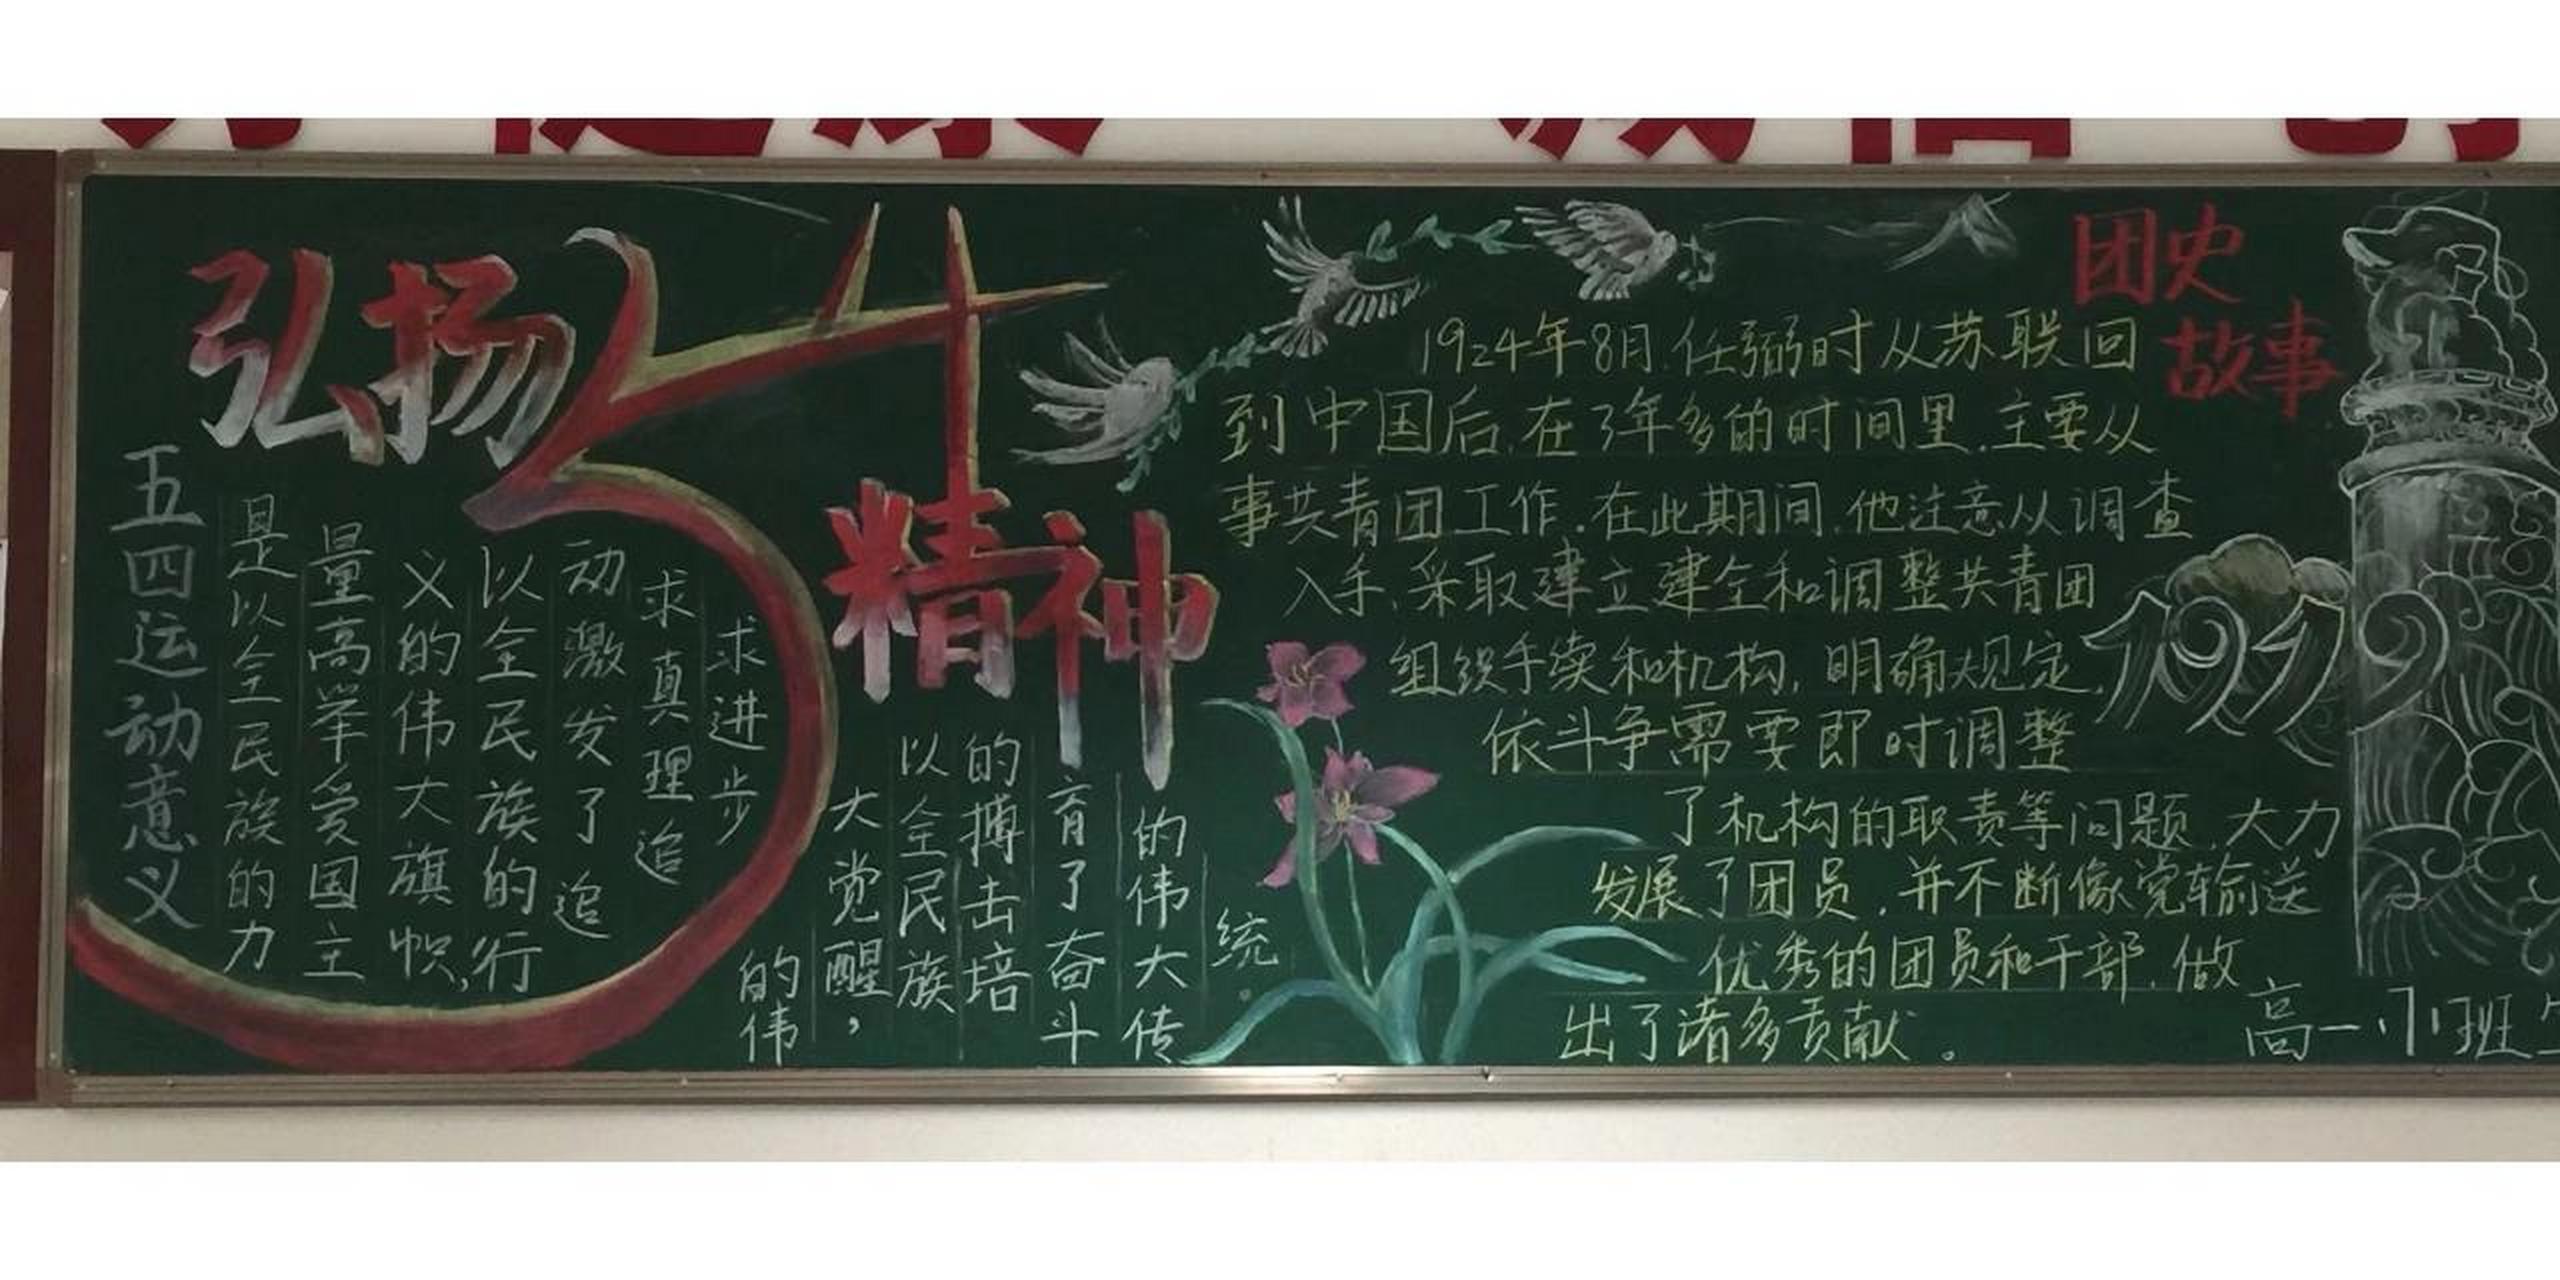 弘扬
54
精神
五四运动意义
是以全民族的力
量高举爱国主
义的伟大旗帜,
以全民族的行
动激发了追
求真理追
求进步
的伟
大觉醒,
以全民族
的搏击培
育了奋斗
的伟大传
统.
团史
故事
1924年8月.任弼时从苏联回
到中国后.在3年多的时间里.主要从
事共青团工作.在此期间.他注意从调查
入手.采取建立建全和调整共青团
组织手续和机构,明确规定,
依斗争需要即时调整
了机构的职责等问题.大力
发展了团员.并不断像党输送
优秀的团员和干部.做
出了诸多贡献。
1919
高一·小班